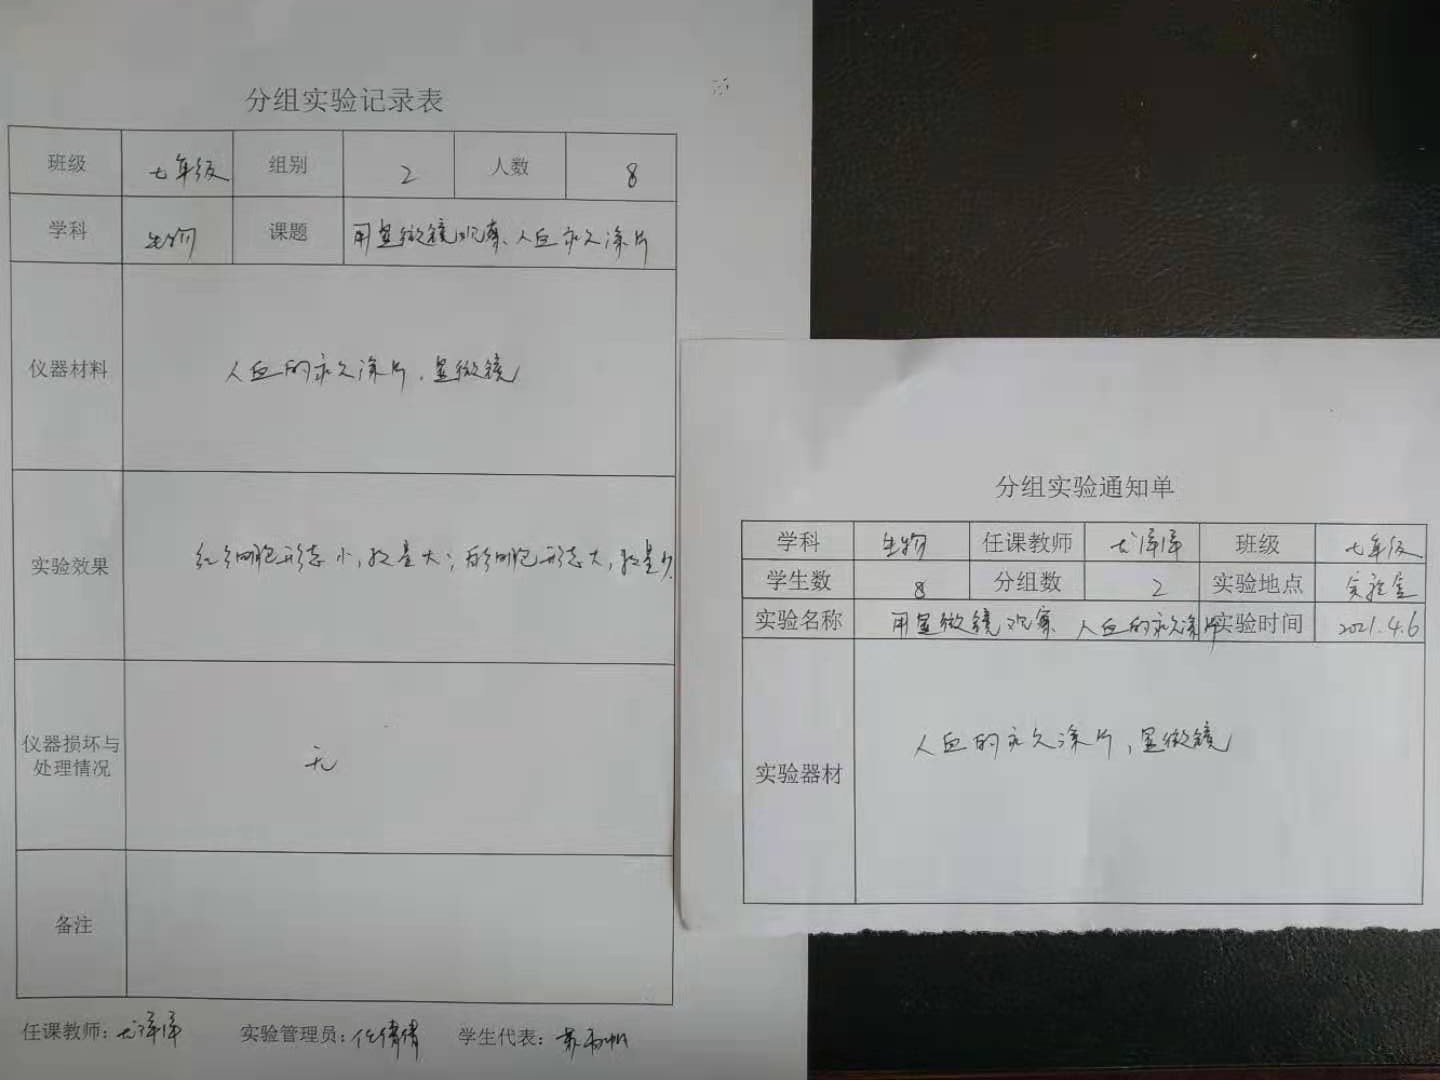 分组实验记录表
班级 七年级 组别 2 人数 8
学科 生物 课题 用显微镜观察人血永久涂片
仪器材料 人血的永久涂片,显微镜
实验效果 红细胞形态小,数量大;白细胞形态大,数量少.
仪器损坏与
处理情况 无
备注
任课教师: 实验管理员:任倩倩 学生代表:
分组实验通知单
学科 生物 任课教师 班级 七年级
学生数 8 分组数 2 实验地点 实验室
实验名称 用显微镜观察 人血的永久涂片 实验时间 2021.4.6
实验器材 人血的永久涂片,显微镜